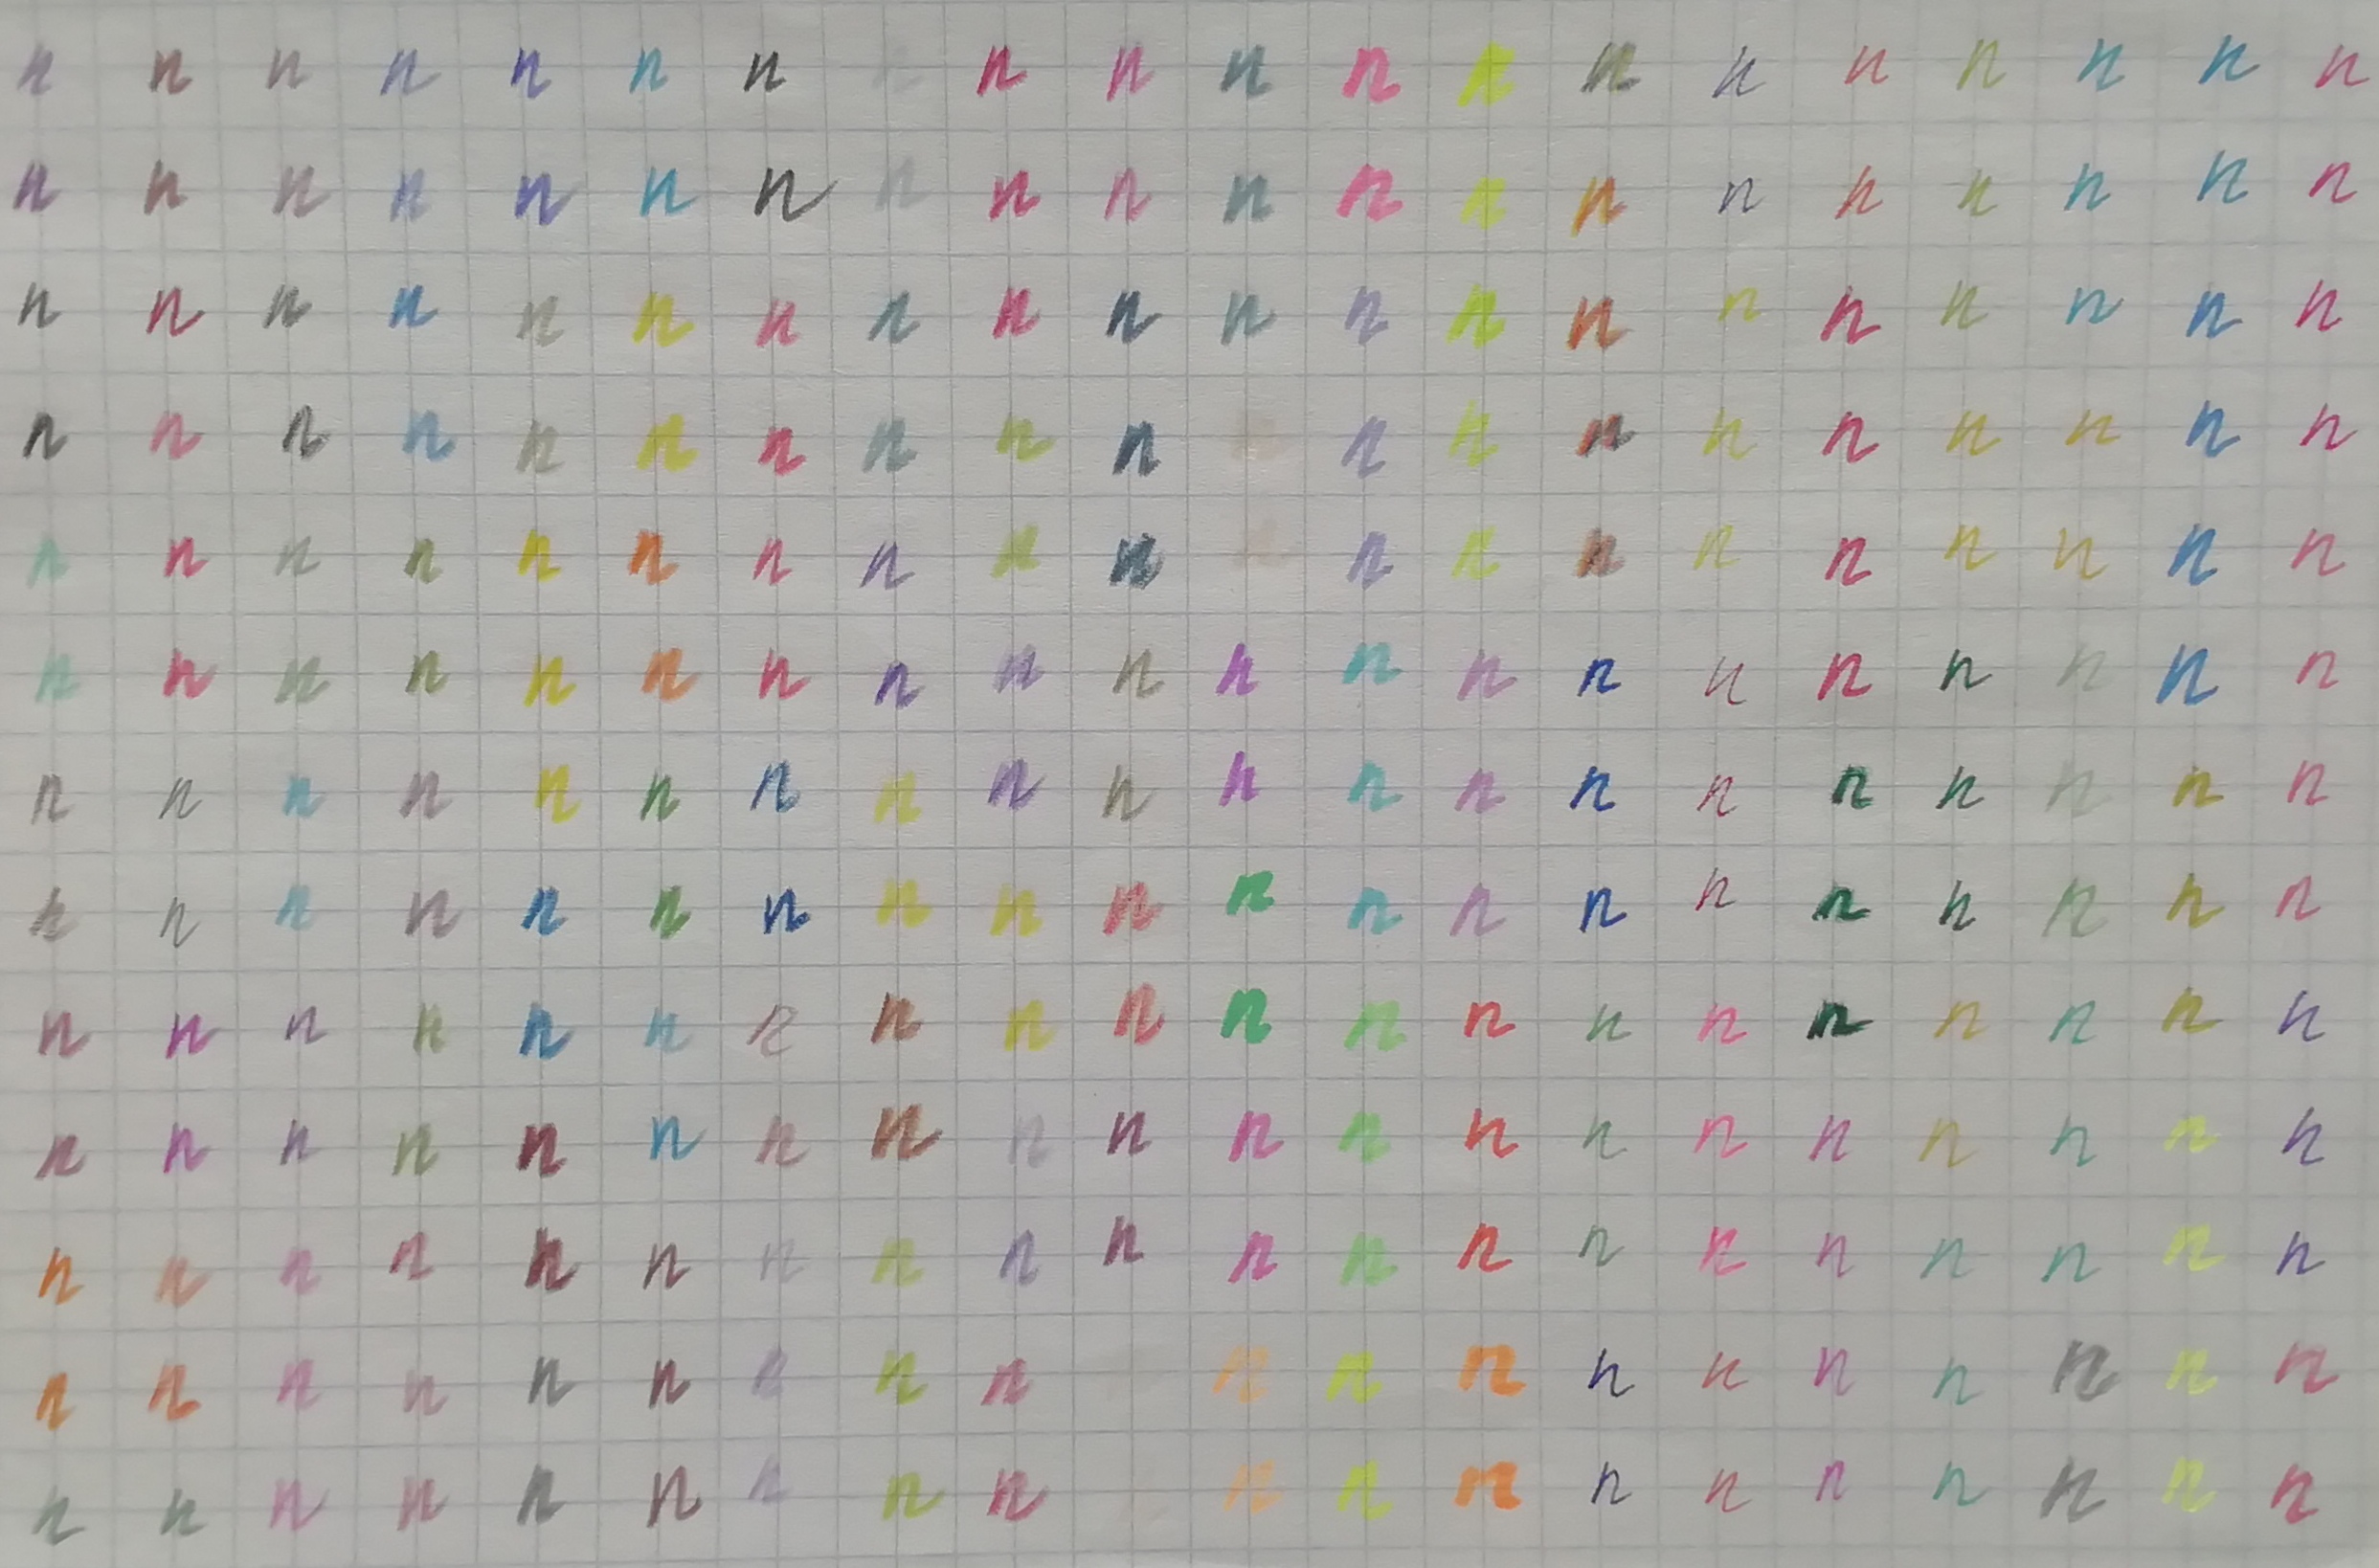 n n n n n n n n n n n n n n n n n n n n
n n n n n n n n n n n n n n n n n n n n
n n n n n n n n n n n n n n n n n n n n
n n n n n n n n n n n n n n n n n n n
n n n n n n n n n n n n n n n n n n n
n n n n n n n n n n n n n n n n n n n n
n n n n n n n n n n n n n n n n n n n n
n n n n n n n n n n n n n n n n n n n n
n n n n n n n n n n n n n n n n n n n n
n n n n n n n n n n n n n n n n n n n n
n n n n n n n n n n n n n n n n n n n n
n n n n n n n n n n n n n n n n n n n
n n n n n n n n n n n n n n n n n n n